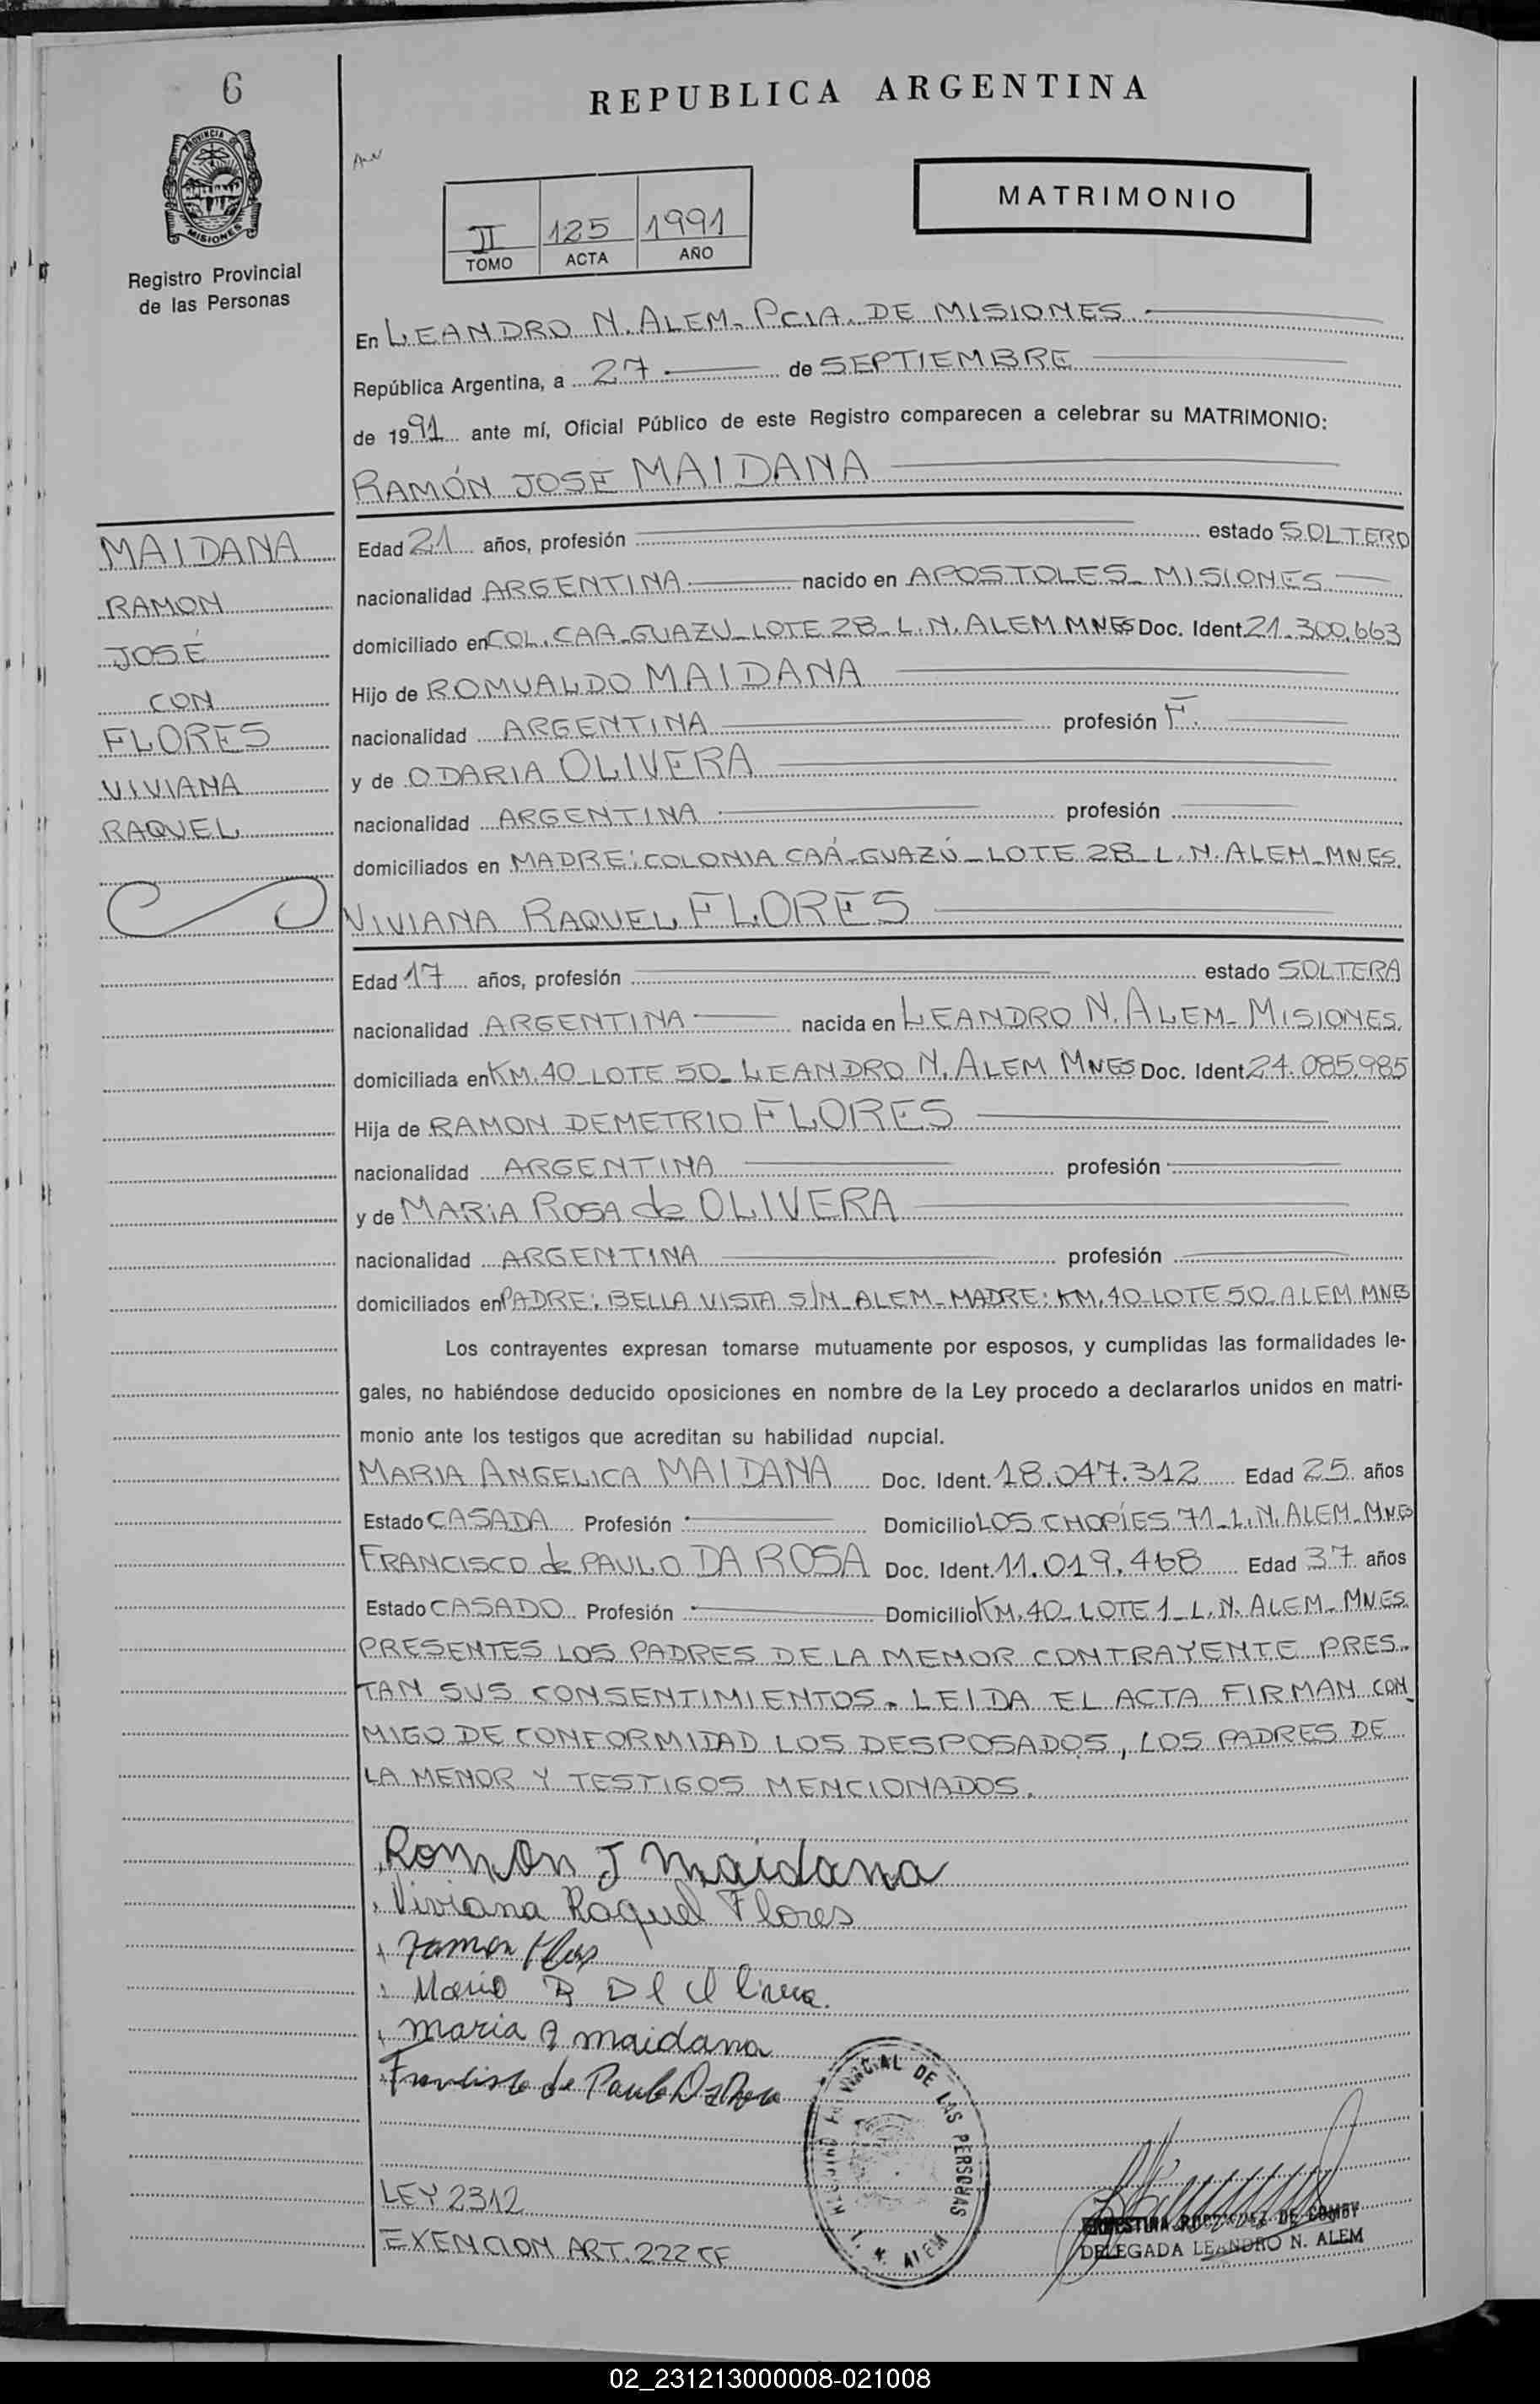 6
REPUBLICA ARGENTINA
PROVINCIA
MISIONES
Registro Provincial
de las Personas
MATRIMONIO
II 125 1991
TOMO ACTA AÑO
En LEANDRO N. ALEM - PCIA. DE MISIONES
República Argentina, a 27 de SEPTIEMBRE
de 1991 ante mí, Oficial Público de este Registro comparecen a celebrar su MATRIMONIO:
RAMÓN JOSE MAIDANA
MAIDANA
RAMON
JOSÉ
CON
FLORES
VIVIANA
RAQUEL
Edad 21 años, profesión estado SOLTERO
nacionalidad ARGENTINA nacido en APOSTOLES - MISIONES
domiciliado en COL. CAA-GUAZU - LOTE 28 - L.N. ALEM MNES Doc. Ident. 21.300.663
Hijo de ROMUALDO MAIDANA
nacionalidad ARGENTINA profesión F.
y de ODARIA OLIVERA
nacionalidad ARGENTINA profesión
domiciliados en MADRE: COLONIA CAÁ-GUAZÚ - LOTE 28 - L.N. ALEM - MNES.
VIVIANA RAQUEL FLORES
Edad 17 años, profesión estado SOLTERA
nacionalidad ARGENTINA nacida en LEANDRO N. ALEM - MISIONES.
domiciliada en KM. 40 - LOTE 50 - LEANDRO N. ALEM MNES Doc. Ident. 24.085.985
Hija de RAMON DEMETRIO FLORES
nacionalidad ARGENTINA profesión
y de MARIA ROSA de OLIVERA
nacionalidad ARGENTINA profesión
domiciliados en PADRE: BELLA VISTA S/N - ALEM - MADRE: KM. 40 - LOTE 50 - ALEM MNES
Los contrayentes expresan tomarse mutuamente por esposos, y cumplidas las formalidades le-
gales, no habiéndose deducido oposiciones en nombre de la Ley procedo a declararlos unidos en matri-
monio ante los testigos que acreditan su habilidad nupcial.
MARIA ANGELICA MAIDANA Doc. Ident. 18.047.312 Edad 25 años
Estado CASADA Profesión Domicilio LOS CHOPÍES 71 - L.N. ALEM - MNES
FRANCISCO de PAULO DA ROSA Doc. Ident. 11.019.468 Edad 37 años
Estado CASADO Profesión Domicilio KM. 40 - LOTE 1 - L.N. ALEM - MNES.
PRESENTES LOS PADRES DE LA MENOR CONTRAYENTE PRES-
TAN SUS CONSENTIMIENTOS - LEIDA EL ACTA FIRMAN CON-
MIGO DE CONFORMIDAD LOS DESPOSADOS, LOS PADRES DE
LA MENOR Y TESTIGOS MENCIONADOS.
Ramon J Maidana
Viviana Raquel Flores
Ramon
Maria R D
maria A maidana
Francisco de Paulo Da Rosa
DE LAS PERSONAS
L. N. ALEM
LEY 2312
EXENCION ART. 222 CF
ERNESTINA RODRIGUEZ DE COMBY
DELEGADA LEANDRO N. ALEM
02_231213000008-021008